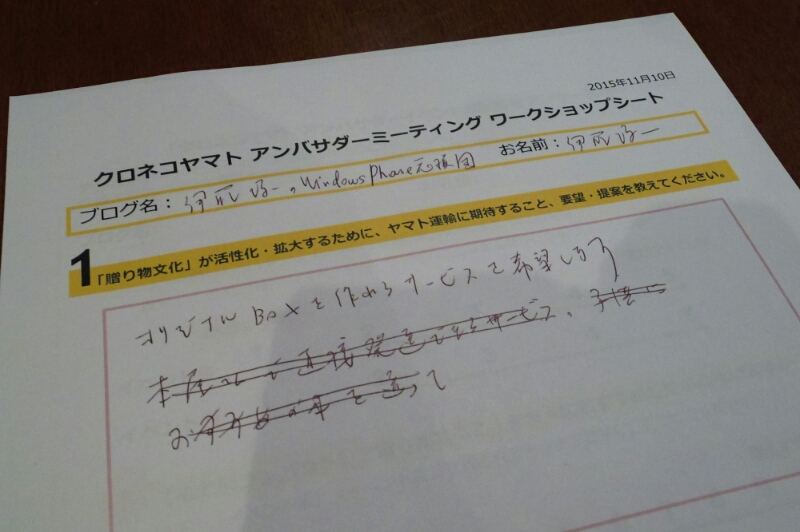 2015年11月10日
クロネコヤマト アンバサダーミーティング ワークショップシート
ブログ名： 伊 浩一のWindowsPhone応援団 お名前： 伊 浩一
1 「贈り物文化」が活性化・拡大するために、ヤマト運輸に期待すること、要望・提案を教えてください。
オリジナルBOXを作れるサービスを希望します
直接 サービス、
お を